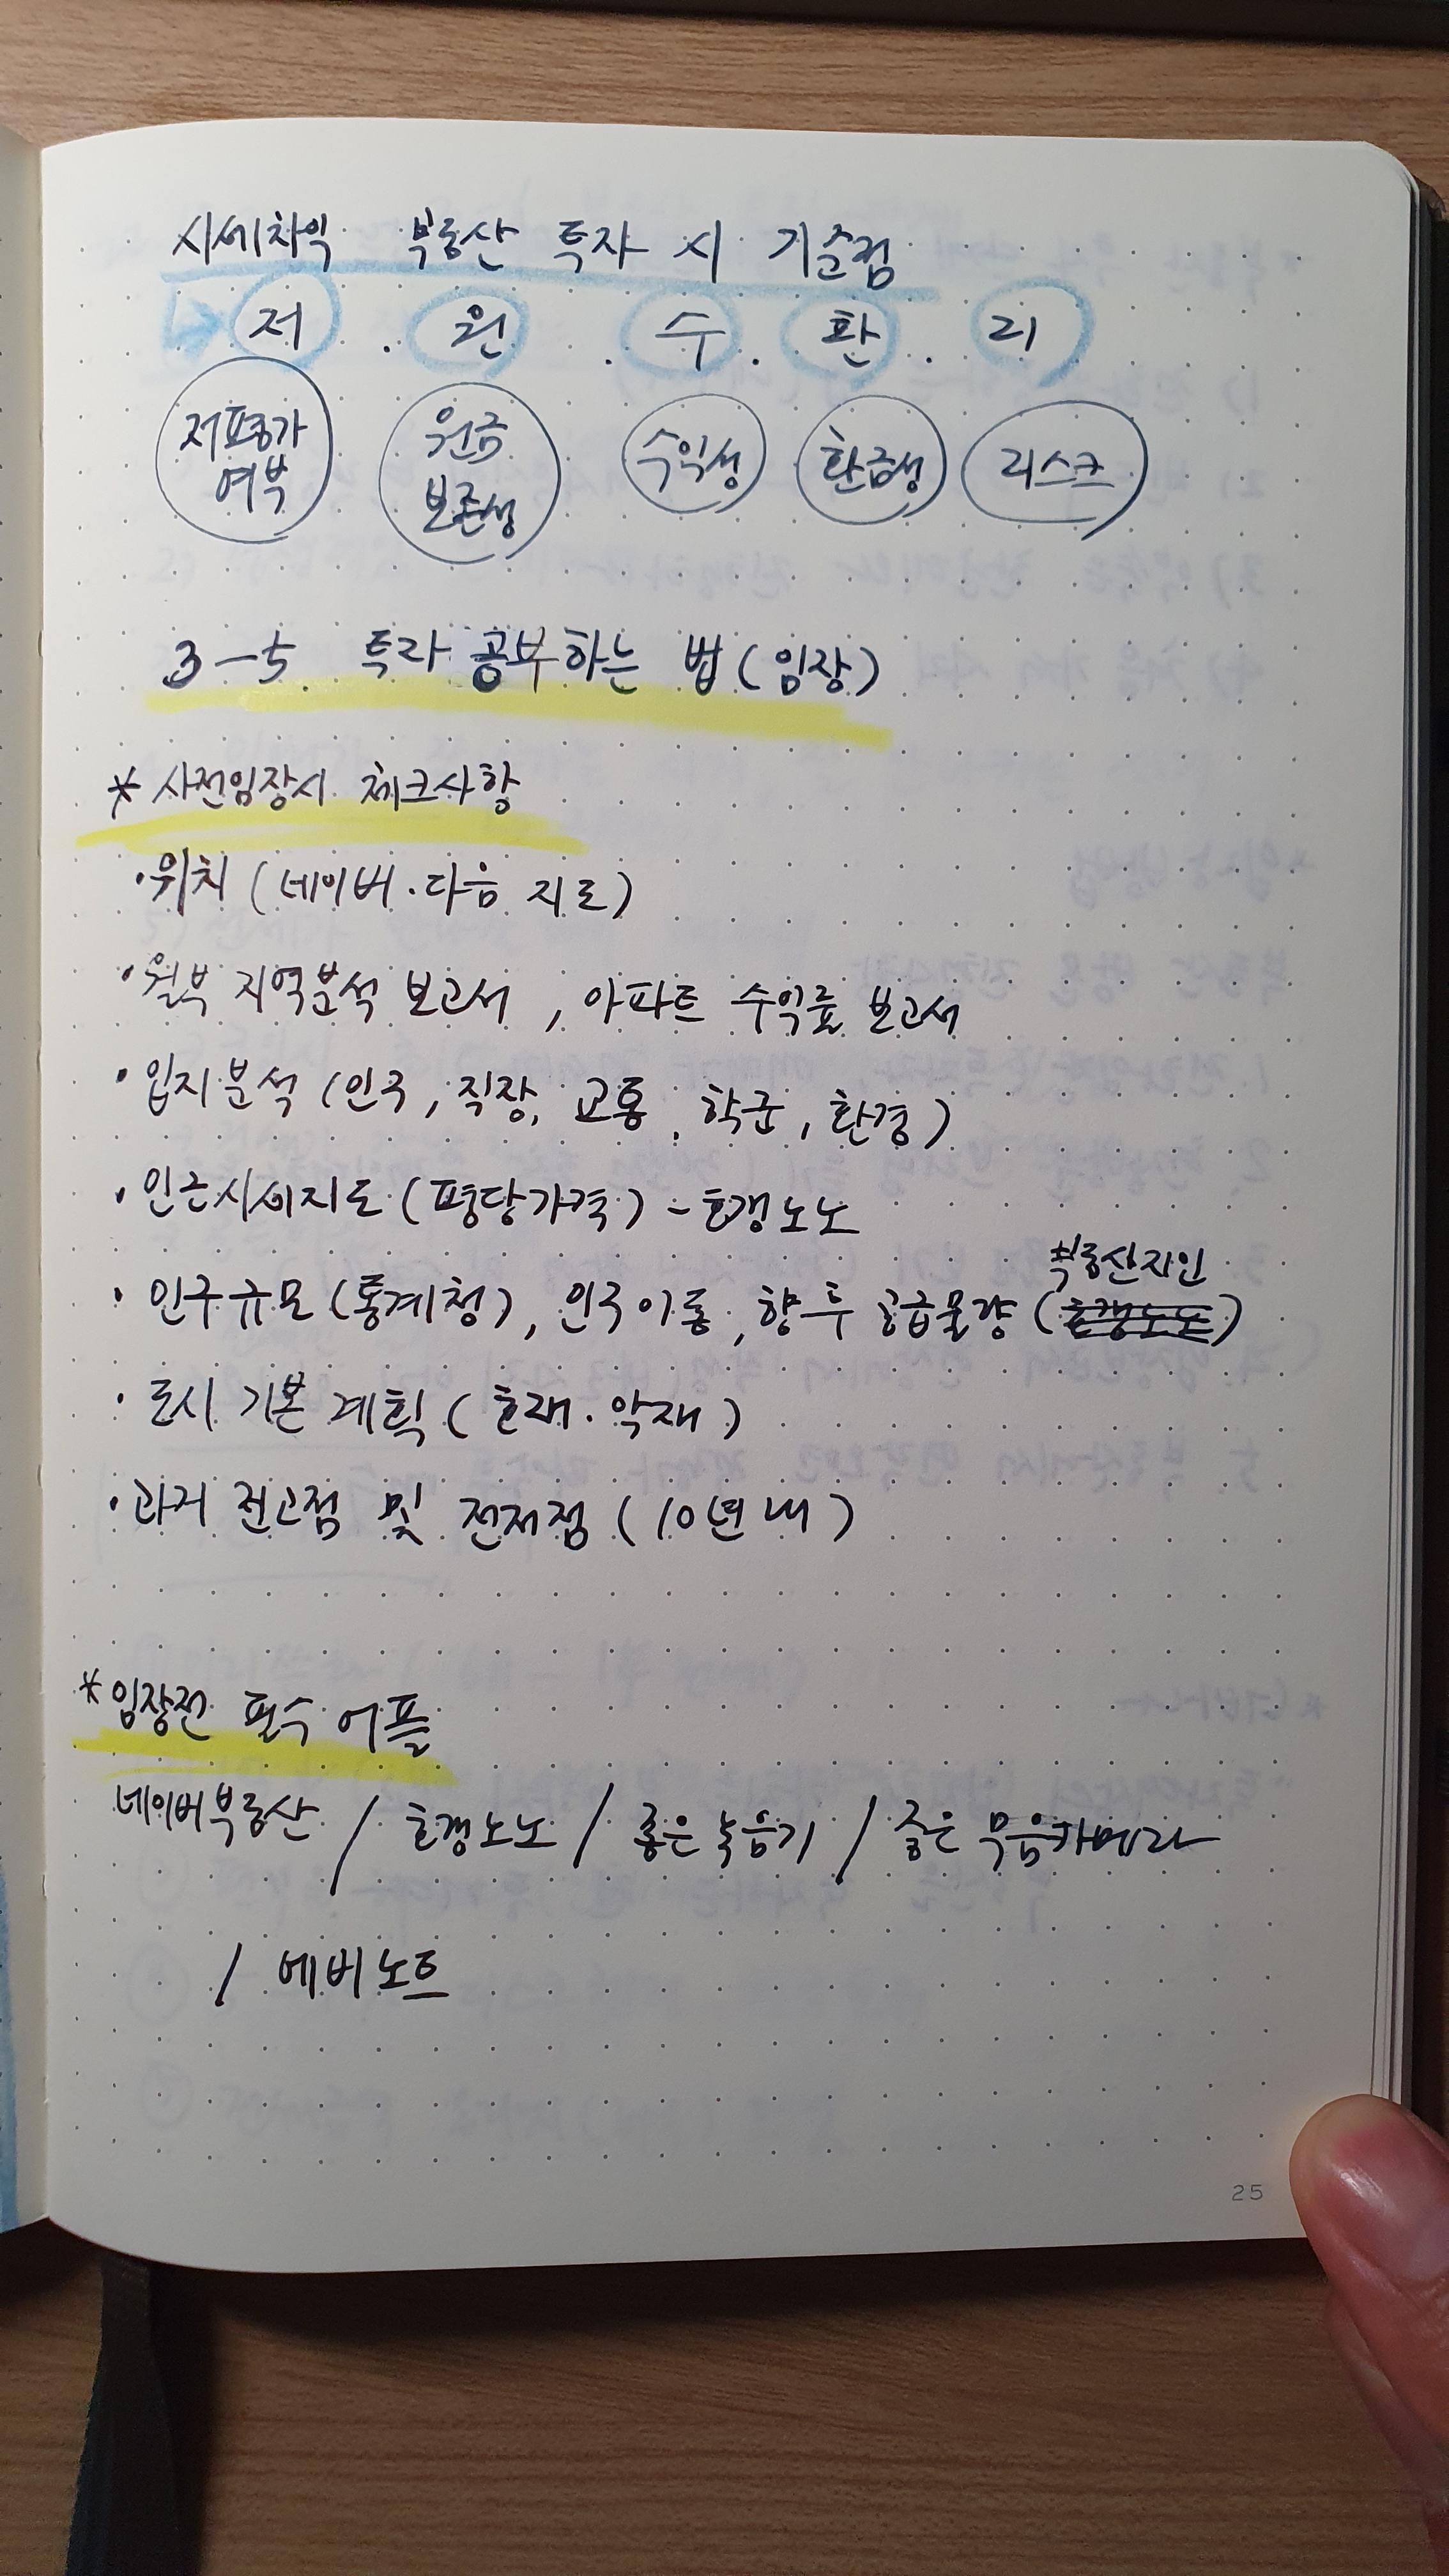 시세차익 부동산 투자 시 기준점
저 . 원 . 수 . 환 . 리
저평가 여부 원금 보존성 수익성 환금성 리스크
3-5. 투자 공부하는 법 (임장)
* 사전임장시 체크사항
· 위치 (네이버 · 다음 지도)
· 월부 지역분석 보고서 , 아파트 수익률 보고서
· 입지분석 (인구, 직장, 교통, 학군, 환경)
· 인근시세지도 (평당가격) - 호갱노노
부동산지인
· 인구규모 (통계청), 인구이동, 향후 공급물량 (호갱노노)
· 도시 기본 계획 (호재 · 악재)
· 과거 전고점 및 전저점 (10년 내)
* 임장전 필수 어플
네이버부동산 / 호갱노노 / 좋은 녹음기 / 좋은 무음카메라
/ 에버노트
25